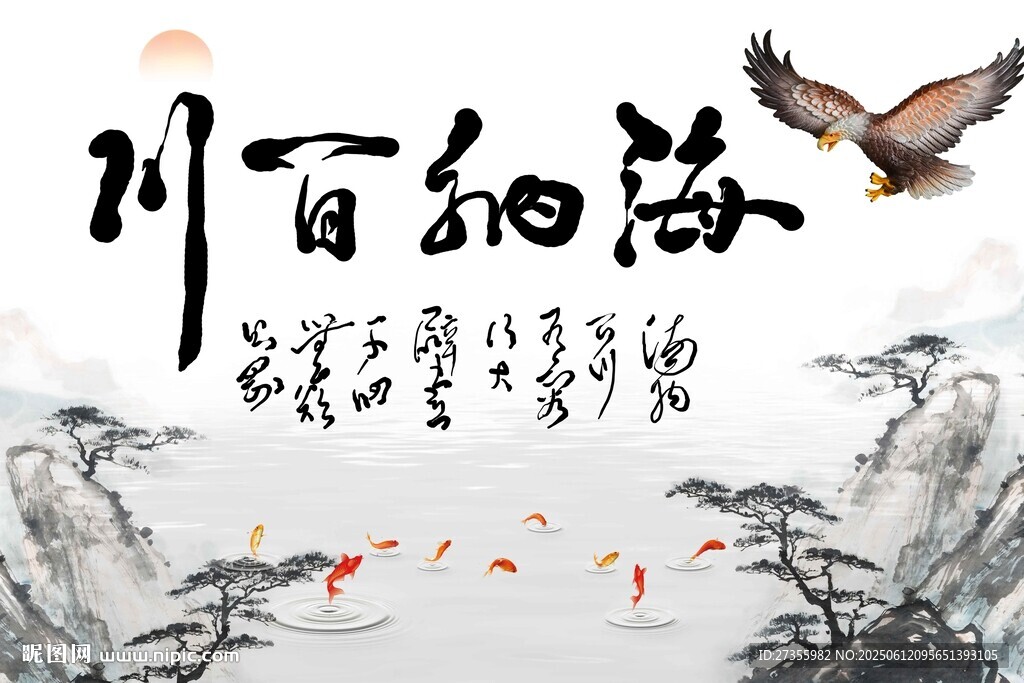 海納百川
海納
百川
有容
乃大
壁立
千仞
無欲
則剛
昵图网 www.nipic.com
ID:27355982 NO:20250612095651393105